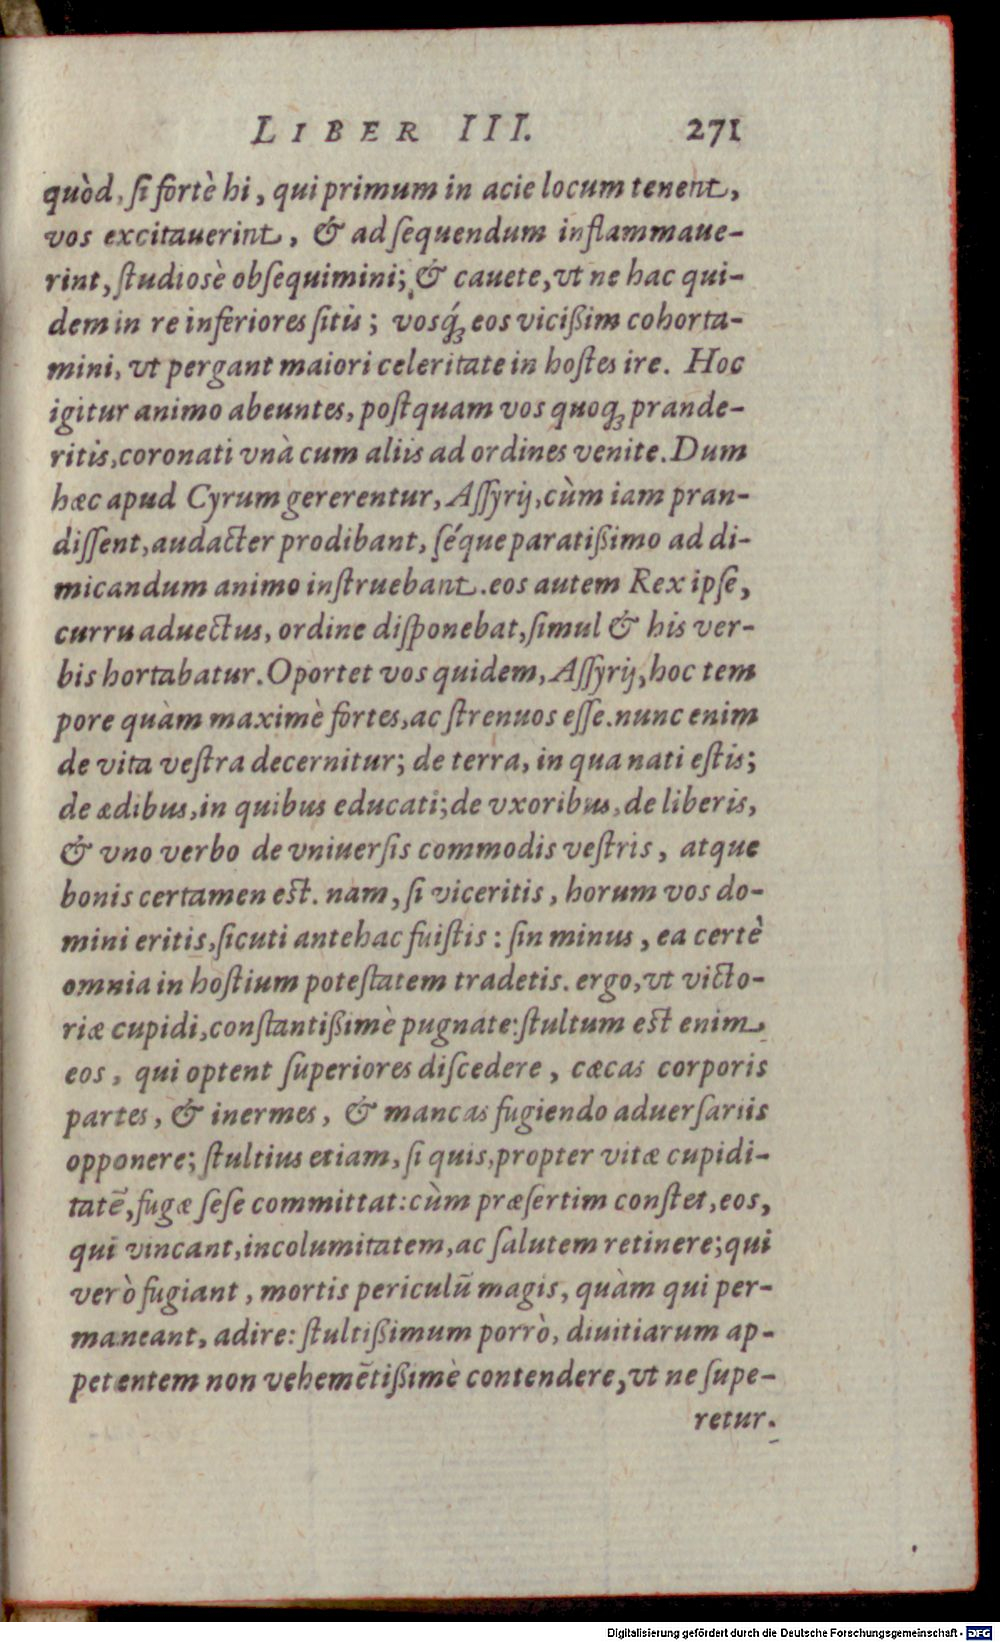 LIBER III. 271
quòd, ſi fortè hi, qui primum in acie locum tenent,
vos excitauerint, & ad ſequendum inflammaue-
rint, ſtudiosè obſequimini; & cauete, vt ne hac qui-
dem in re inferiores ſitis; vosq́ꝫ eos vicißim cohorta-
mini, vt pergant maiori celeritate in hoſtes ire. Hoc
igitur animo abeuntes, poſtquam vos quoqꝫ prande-
ritis, coronati vnà cum aliis ad ordines venite. Dum
hæc apud Cyrum gererentur, Aſſyrij, cùm iam pran-
diſſent, audacter prodibant, ſéque paratißimo ad di-
micandum animo inſtruebant. eos autem Rex ipſe,
curru aduectus, ordine diſponebat, ſimul & his ver-
bis hortabatur. Oportet vos quidem, Aſſyrij, hoc tem
pore quàm maximè fortes, ac ſtrenuos eſſe. nunc enim
de vita veſtra decernitur; de terra, in qua nati eſtis;
de ædibus, in quibus educati; de vxoribus, de liberis,
& vno verbo de vniuerſis commodis veſtris, atque
bonis certamen eſt. nam, ſi viceritis, horum vos do-
mini eritis, ſicuti antehac fuiſtis: ſin minus, ea certè
omnia in hoſtium poteſtatem tradetis. ergo, vt victo-
riæ cupidi, conſtantißimè pugnate: ſtultum eſt enim,
eos, qui optent ſuperiores diſcedere, cæcas corporis
partes, & inermes, & mancas fugiendo aduerſariis
opponere; ſtultius etiam, ſi quis, propter vitæ cupidi-
tatē, fugæ ſeſe committat: cùm præſertim conſtet, eos,
qui vincant, incolumitatem, ac ſalutem retinere; qui
verò fugiant, mortis periculū magis, quàm qui per-
maneant, adire: ſtultißimum porrò, diuitiarum ap-
petentem non vehemētißimè contendere, vt ne ſupe-
retur.
Digitalisierung gefördert durch die Deutsche Forschungsgemeinschaft - DFG